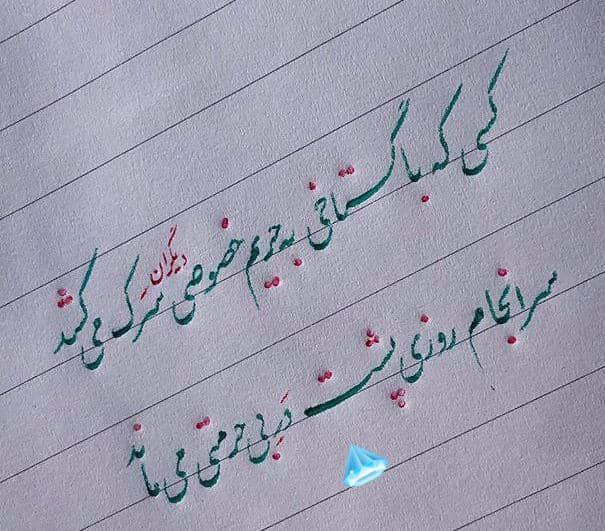 کسی که با گستاخی به حریم خصوصی دیگران سرک می کشد
سرانجام روزی پشت دَرِ بی حرمتی می ماند